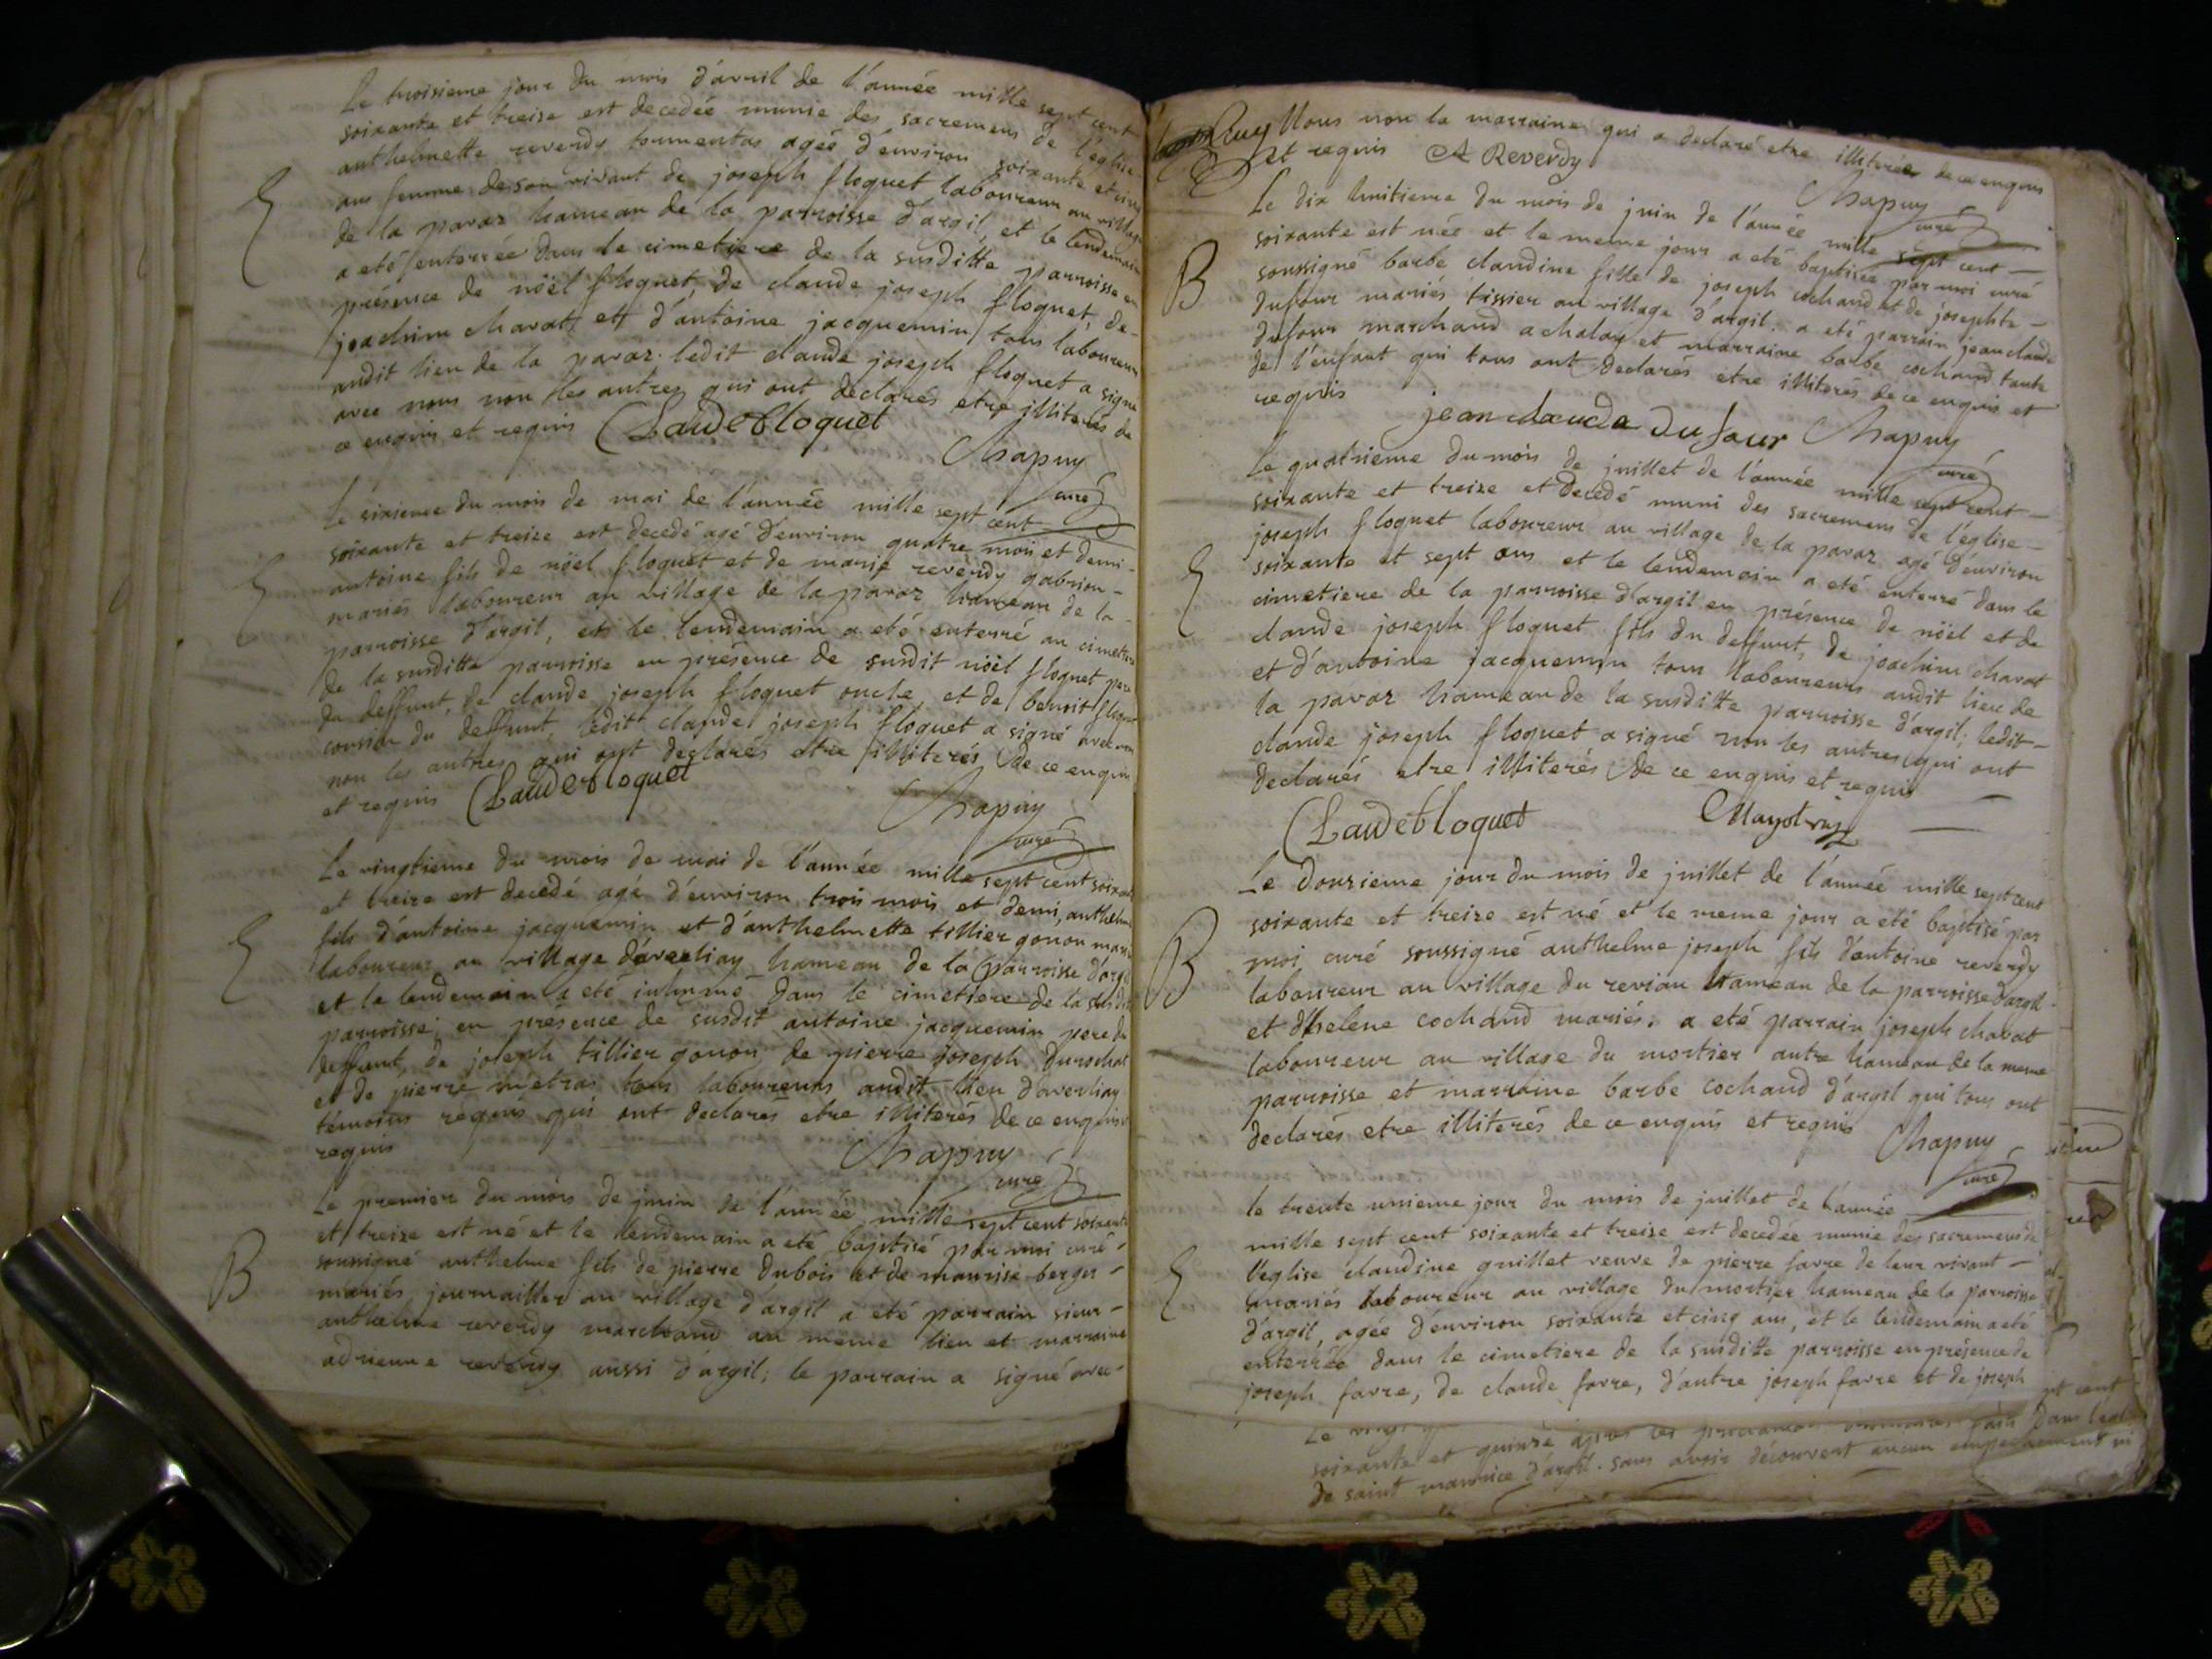 Le troisieme jour du mois d'avril de l'année mille sept cent
soixante et treise est decedée munie des sacremens de l'église
anthelmette reverdy tormentas agée d'environ soixante et cinq
ans femme de son vivant de joseph floquet laboureur au village
de la pavaz hameau de la parroisse d'argil, et le lendemain
a eté enterrée dans le cimetiere de la susditte parroisse en
présence de nöel floquet, de claude joseph floquet, de
joachim charat, et d'antoine jacquemin tous laboureurs
audit lieu de la pavaz. ledit claude joseph floquet a signé
avec nous non les autres qui ont declarés etre illiterés de
ce enquis et requis Claude floquet
Chapuy
curé
Le sixieme du mois de mai de l'année mille sept cent
soixante et treize est decedé agé d'environ quatre mois et demi
antoine fils de nöel floquet et de marie reverdy gabrion
mariés laboureur au village de la pavaz hameau de la
parroisse d'argil, et le lendemain a eté enterré au cimetiere
de la susditte parroisse en présence de susdit nöel floquet pere
du deffunt, de claude joseph floquet oncle et de benoit floquet
cousin du deffunt, ledit claude joseph floquet a signé avec nous
non les autres qui ont declarés etre illiterés de ce enquis
et requis Claude floquet
Chapuy
curé
Le vingtieme du mois de mai de l'année mille sept cent soixante
et treize est decedé agé d'environ trois mois et demi, anthelme
fils d'antoine jacquemin et d'anthelmette tillier gonon mariés
laboureur au village d'averliay hameau de la parroisse d'argil
et le lendemain a eté inhumé dans le cimetiere de la susditte
parroisse; en présence de susdit antoine jacquemin pere du
deffunt, de joseph tillier gonon, de pierre joseph durochat
et de pierre metras tous laboureurs audit lieu d'averliay
témoins requis qui ont declarés etre illiterés de ce enquis
requis
Chapuy
curé
B
Le premier du mois de juin de l'année mille sept cent soixante
et treize est né et le lendemain a eté baptisé par moi curé
soussigné anthelme fils de pierre dubois et de maurise berger
mariés journallier au village d'argil a eté parrain sieur
anthelme reverdy marchand au même lieu et marraine
adrienne reverdy aussi d'argil; le parrain a signé avec
Nous non la marraine qui a declaré etre illiterée de ce enquis
et requis A Reverdy
Chapuy
curé
B
Le dix huitieme du mois de juin de l'année mille sept cent
soixante est née et le meme jour a eté baptisée par moi curé
soussigné barbe claudine fille de joseph cochand et de josephte
dufour mariés tissier au village d'argil. a eté parrain jean claude
dufour marchand a chalay et marraine barbe cochand tante
de l'enfant qui tous ont declarés etre illiterés de ce enquis et
requis jean claude Dufour Chapuy
curé
Le quatrieme du mois de juillet de l'année mille sept cent
soixante et treize et decedé muni des sacremens de l'église
joseph floquet laboureur au village de la pavaz agé d'environ
soixante et sept ans et le lendemain a eté enterré dans le
cimetiere de la parroisse d'argil en présence de nöel et de
claude joseph floquet fils du deffunt, de joachim charat
et d'antoine jacquemin tous laboureurs audit lieu de
la pavaz hameau de la susditte parroisse d'argil; ledit
claude joseph floquet a signé non les autres qui ont
declarés etre illiterés de ce enquis et requis
Claude floquet
Le douzieme jour du mois de juillet de l'année mille sept cent
soixante et treize est né et le meme jour a eté baptisé par
B
moi curé soussigné anthelme joseph fils d'antoine reverdy
laboureur au village du revian hameau de la parroisse d'argil
et d'helene cochand mariés. a eté parrain joseph chavat
laboureur au village du mortier autre hameau de la meme
parroisse et marraine barbe cochand d'argil qui tous ont
declarés etre illiterés de ce enquis et requis Chapuy
curé
le trente unieme jour du mois de juillet de l'année
mille sept cent soixante et treise est decedée munie des sacremens de
l'église claudine guillet veuve de pierre favre de leur vivant
mariés laboureur au village du mortier hameau de la parroisse
d'argil, agée d'environ soixante et cinq ans, et le lendemain a eté
enterrée dans le cimetiere de la susditte parroisse en présence de
joseph favre, de claude favre, d'autre joseph favre et de joseph
soixante et quinze après les
dans l'église
de saint maurice d'argil. sans avoir découvert aucun empechement ni